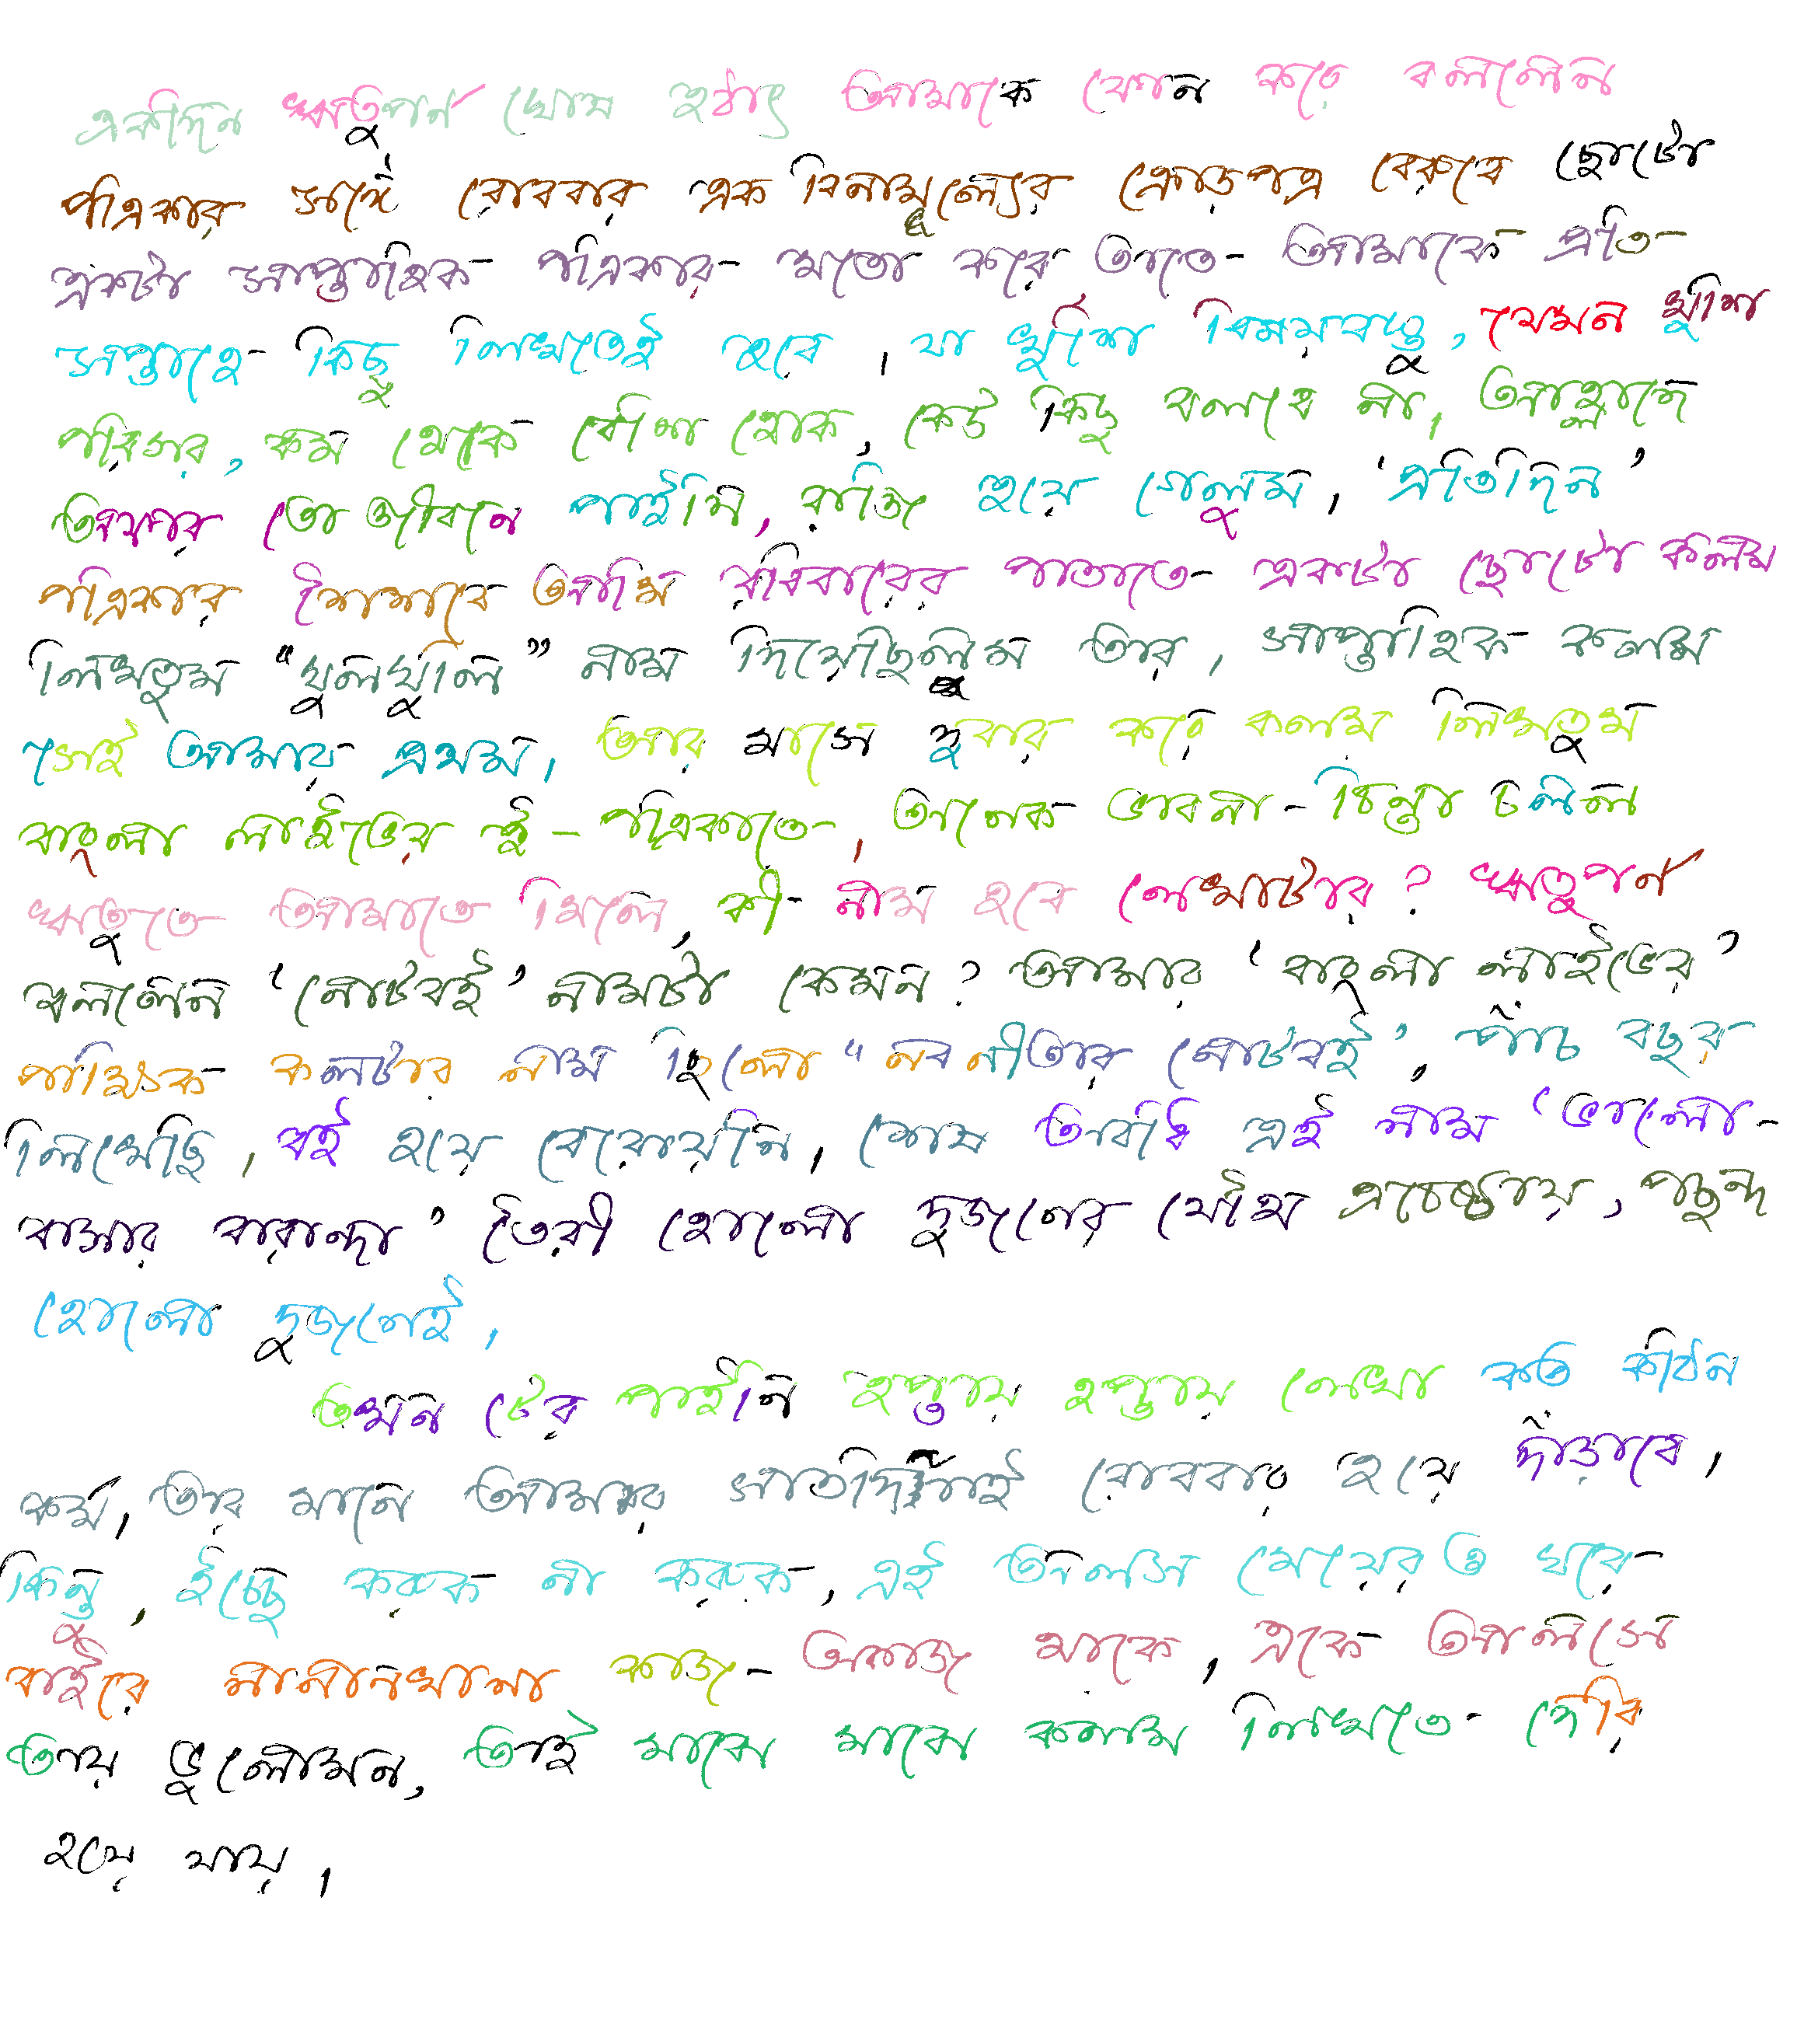 একদিন ঋতুপর্ণ ঘোষ হঠাৎ আমাকে ফোন করে বললেন
পত্রিকার সঙ্গে রোববার এক বিনামূল্যের ক্রোড়পত্র বেরুবে ছোটো
একটা সাপ্তাহিক পত্রিকার মতো করে তাতে আমাকে প্রতি
সপ্তাহে কিছু লিখতেই হবে, যা খুশি বিষয়বস্তু, যেমন খুশি
পরিসর, কম থেকে বেশি হোক, কেউ কিছু বলবে না, আহ্লাদে
অফার তো জীবনে পাইনি, রাজি হয়ে গেলুম, ‘প্রতিদিন’
পত্রিকার ইশাশবে আমি রবিবারের পাতাতে একটা ছোটো কলম
লিখতুম “ঘুলঘুলি” নাম দিয়েছিলুম তার, সাপ্তাহিক কলম
সেই আমার প্রথম, আর মাসে দুবার করে কলাম লিখতুম
বাংলা লাইভের ই-পত্রিকাতে, অনেক ভাবনা-চিন্তা চলল
ঋতুতে আমাতে মিলে, কী নাম হবে লেখাটার? ঋতুপর্ণ
বললেন ‘নোটবই’ নামটা কেমন? আমার ‘বাংলা লাইভের’
পাক্ষিক কলটার নাম ছিলো “নবনীতার নোটবই’, পাঁচ বছর
লিখেছি, বই হয়ে বেরোয়নি, শেষ অবধি এই নাম ‘ভালো-
বাসার বারান্দা’ তৈরী হোলো দুজনের যৌথ প্রচেষ্টায়, পছন্দ
হোলো দুজনেই,
তখন টের পাইনি হপ্তায় হপ্তায় লেখা কত কঠিন
কর্ম, তার মানে আমার সাতদিনই রোববার হয়ে দাঁড়াবে,
কিন্তু, ইচ্ছে করুক না করুক, এই অলস মেয়েরও ঘরে
বাইরে নানানখানা কাজ-অকাজ থাকে, একে আলসে
তায় ভুলোমন, তাই মাঝে মাঝে কলাম লিখতে দেরি
হয়ে যায়,